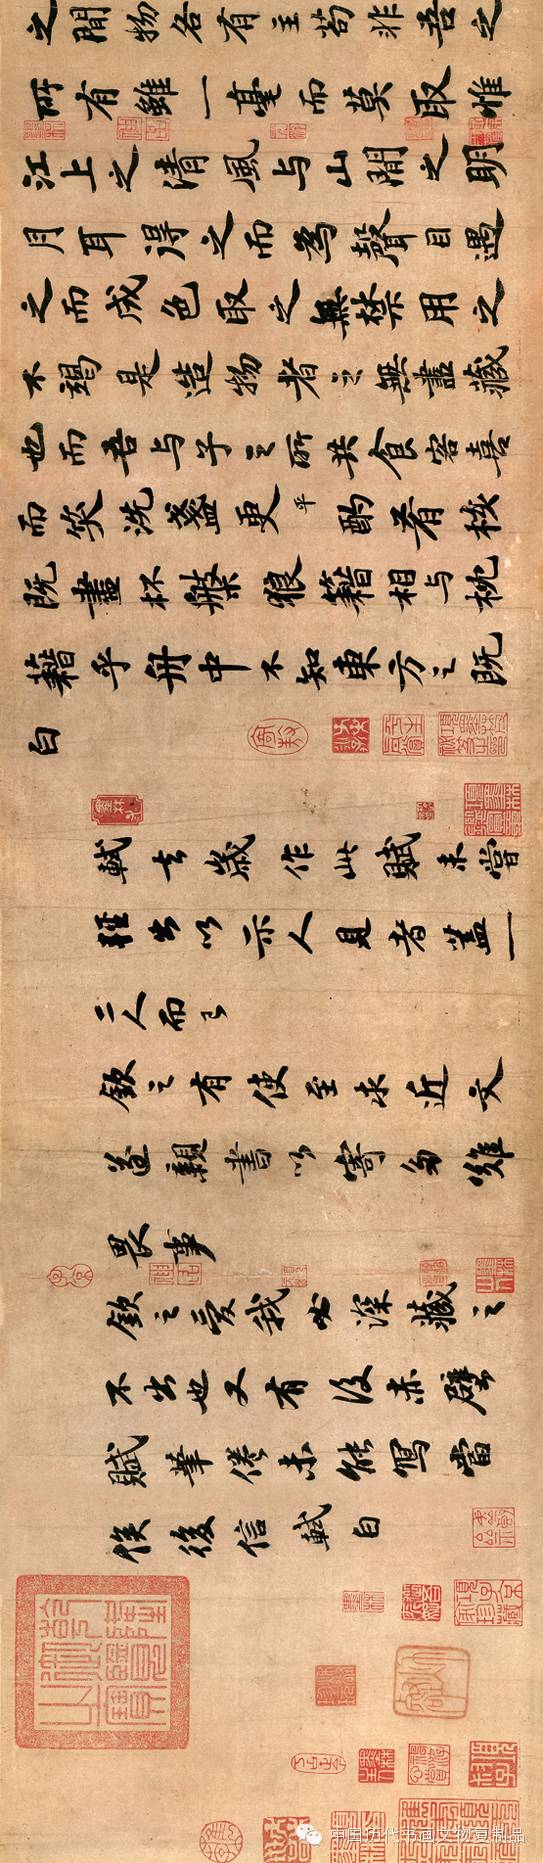 之間物各有主苟非吾之
所有雖一毫而莫取惟
江上之清風与山間之明
月耳得之而為聲目遇
之而成色取之無禁用之
不竭是造物者之無盡藏
也而吾与子之所共食客喜
而笑洗盞更平酌肴核
既盡杯盤狼籍相与枕
藉乎舟中不知東方之既
白
軾去歲作此賦未嘗
輕出以示人見者蓋一
二人而已
欽之有使至求近文
遂親書以寄多難
畏事
欽之愛我必深藏之
不出也又有後赤壁
賦筆倦未能寫當
俟後信軾白
中国历代书画文物复制品